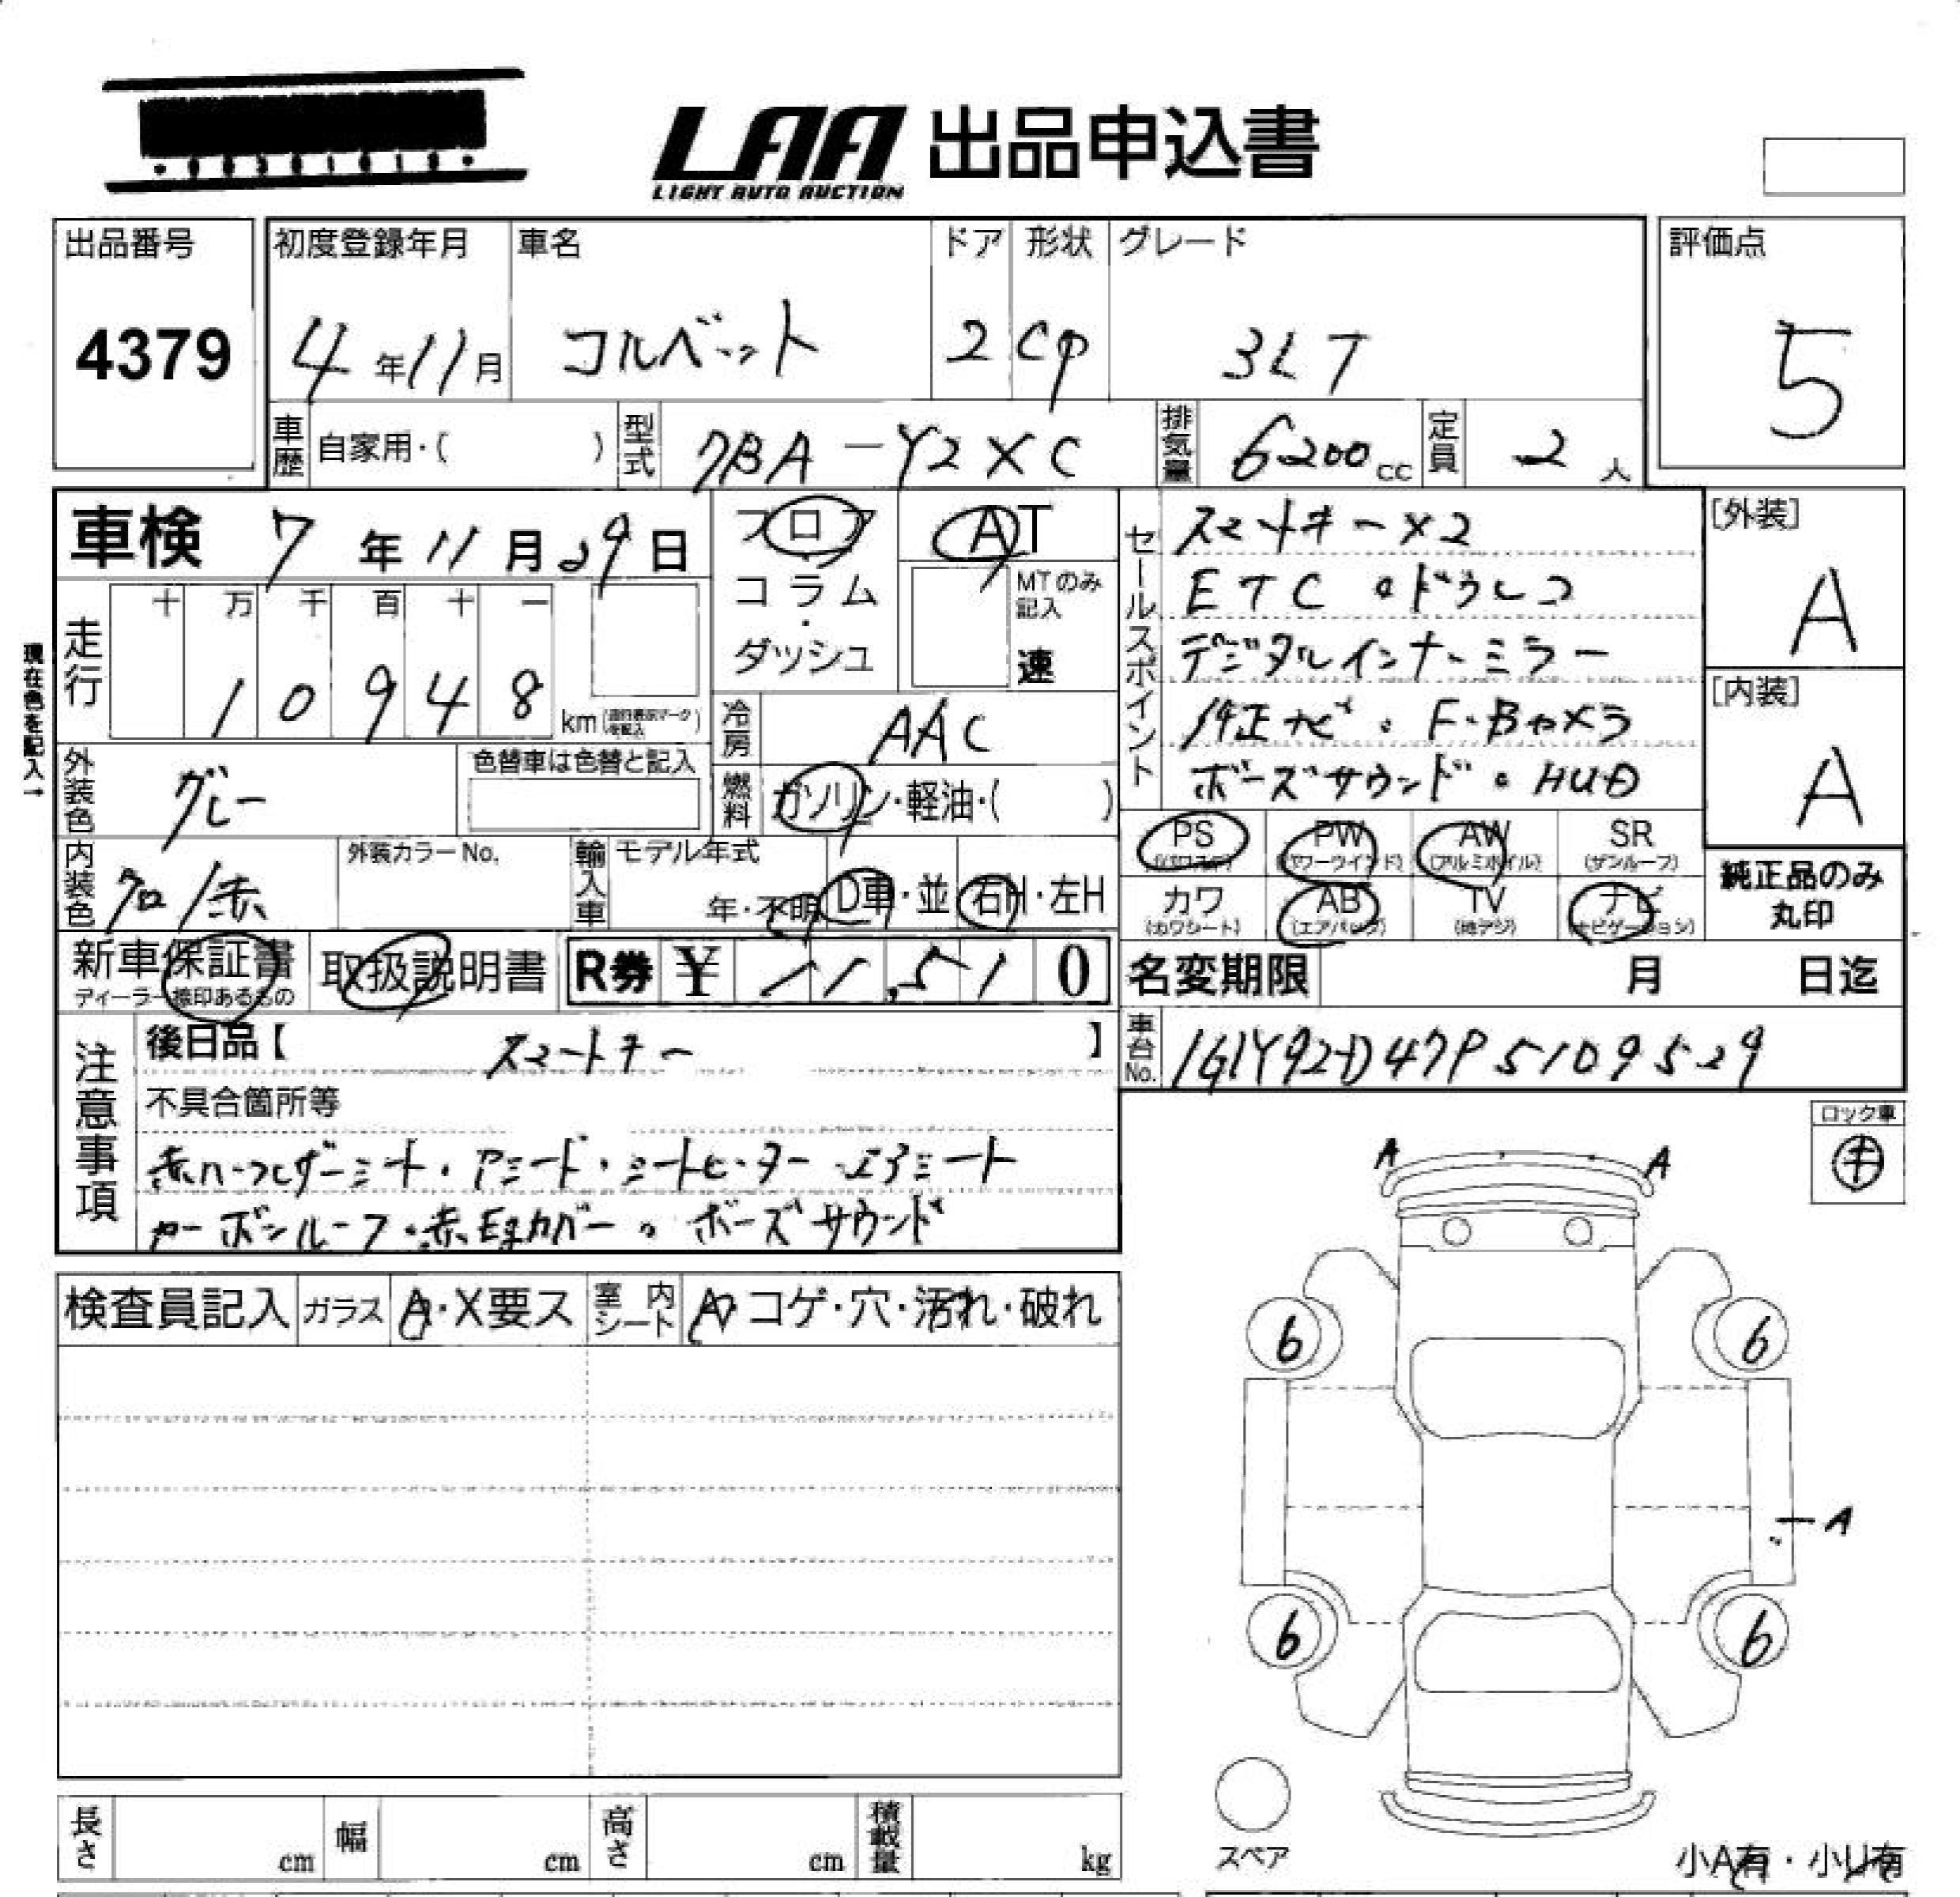 LAA 出品申込書
LIGHT AUTO AUCTION
出品番号
4379
初度登録年月
4年11月
車名
コルベット
ドア
2
形状
cp
グレード
3LT
評価点
5
車歴 自家用・( )
型式 7BA-Y2XC
排気量 6200cc
定員 2人
車検 7年11月29日
現在色を記入→
走行 十 万 千 百 十 一
10948 km
外装色 グレー
色替車は色替と記入
内装色 クロ/赤
外装カラーNo.
フロア・コラム・ダッシュ
AT
MTのみ記入
速
冷房 AAC
燃料 ガソリン・軽油・( )
輸入車 モデル年式
年・不明 D車・並 右H・左H
セールスポイント
スマートキー×2
ETC・ドラレコ
デジタルインナーミラー
純正ナビ・F・Bカメラ
ボーズサウンド・HUD
[外装]
A
[内装]
A
PS PW AW SR
(パワステ) (パワーウインド) (アルミホイル) (サンルーフ)
カワ AB TV ナビ
(カワシート) (エアバック) (地デジ) (ナビゲーション)
純正品のみ
丸印
新車保証書
ディーラー捺印あるもの
取扱説明書
R券 ¥ 11,510
名変期限 月 日迄
車台No. 1G1Y92D47P5109529
注意事項
後日品【 スマートキー 】
不具合箇所等
赤ハーフレザーシート・Pシート・シートヒーター・エアシート
カーボンルーフ・赤 カバー・ボーズサウンド
ロック車
キ
検査員記入 ガラス A・X要ス 室内シート A・コゲ・穴・汚れ・破れ
A A
6 6
A
6 6
スペア
小A有・小U有
長さ cm 幅 cm 高さ cm 積載量 kg